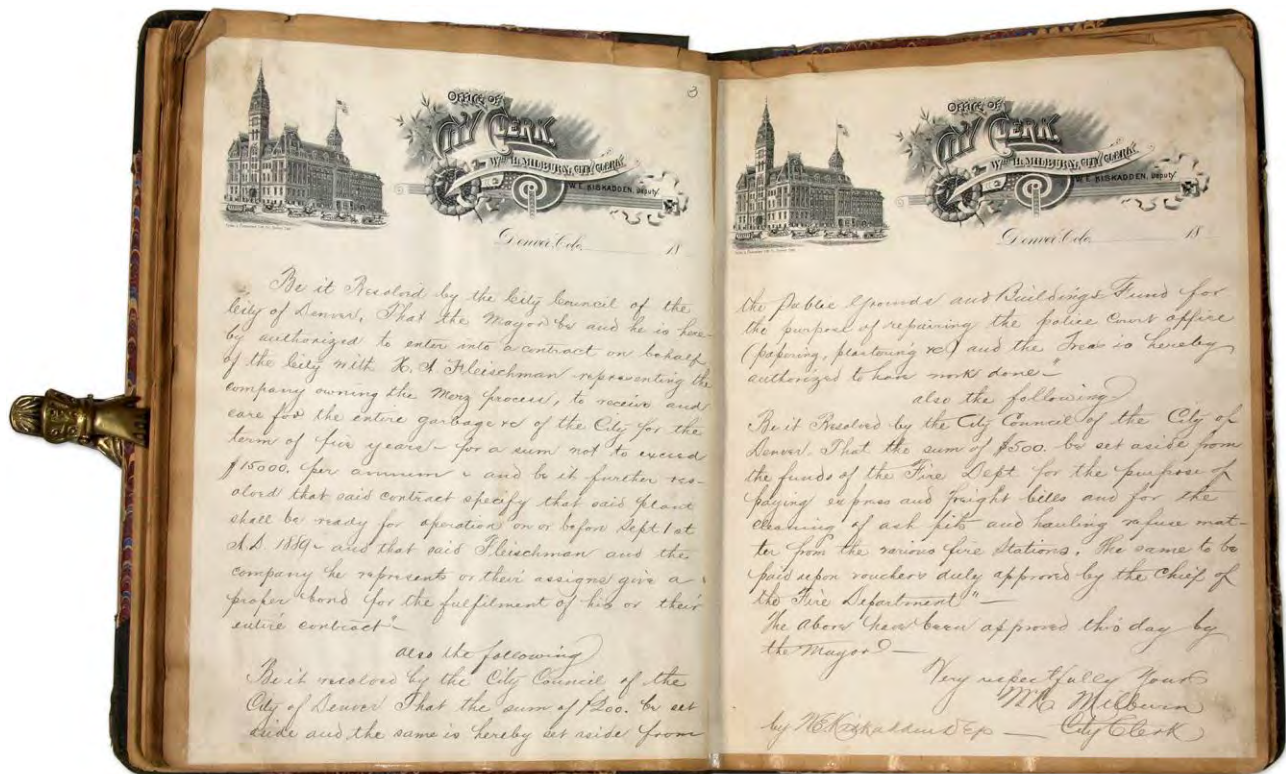 3
OFFICE OF
CITY CLERK.
WM. H. MILBURN, CITY CLERK.
W. E. KISKADDEN, Deputy
Denver, Colo. 18
Be it Resolved by the City Council of the
City of Denver, That the Mayor be and he is here-
by authorized to enter into a contract on behalf
of the City with Fleischman representing the
company owning the Merz process, to receive and
care for the entire garbage &c of the City for the
term of five years – for a sum not to exceed
$15000. per annum & and be it further res-
olved that said contract specify that said plant
shall be ready for operation on or before Sept 1st
A.D. 1889 – and that said Fleischman and the
company he represents or their assigns give a
proper bond for the fulfilment of his or their
entire contract" –
also the following
Be it resolved by the City Council of the
City of Denver That the sum of $200. be set
aside and the same is hereby set aside from
OFFICE OF
CITY CLERK.
WM. H. MILBURN, CITY CLERK.
W. E. KISKADDEN, Deputy
Denver, Colo. 18
the Public Grounds and Buildings Fund for
the purpose of repairing the police Court office
(papering, plastering &c) and the is hereby
authorized to have work done – "
also the following
Be it Resolved by the City Council of the City of
Denver. That the sum of $500. be set aside from
the funds of the Fire Dept for the purpose of
paying express and freight bills and for the
cleaning of ash pits and hauling refuse mat-
ter from the various fire Stations. The same to be
paid upon vouchers duly approved by the Chief of
the Fire Department" –
The above have been approved this day by
the Mayor –
Very respectfully Yours
Milburn
by W.E. Kiskadden Dep – City Clerk